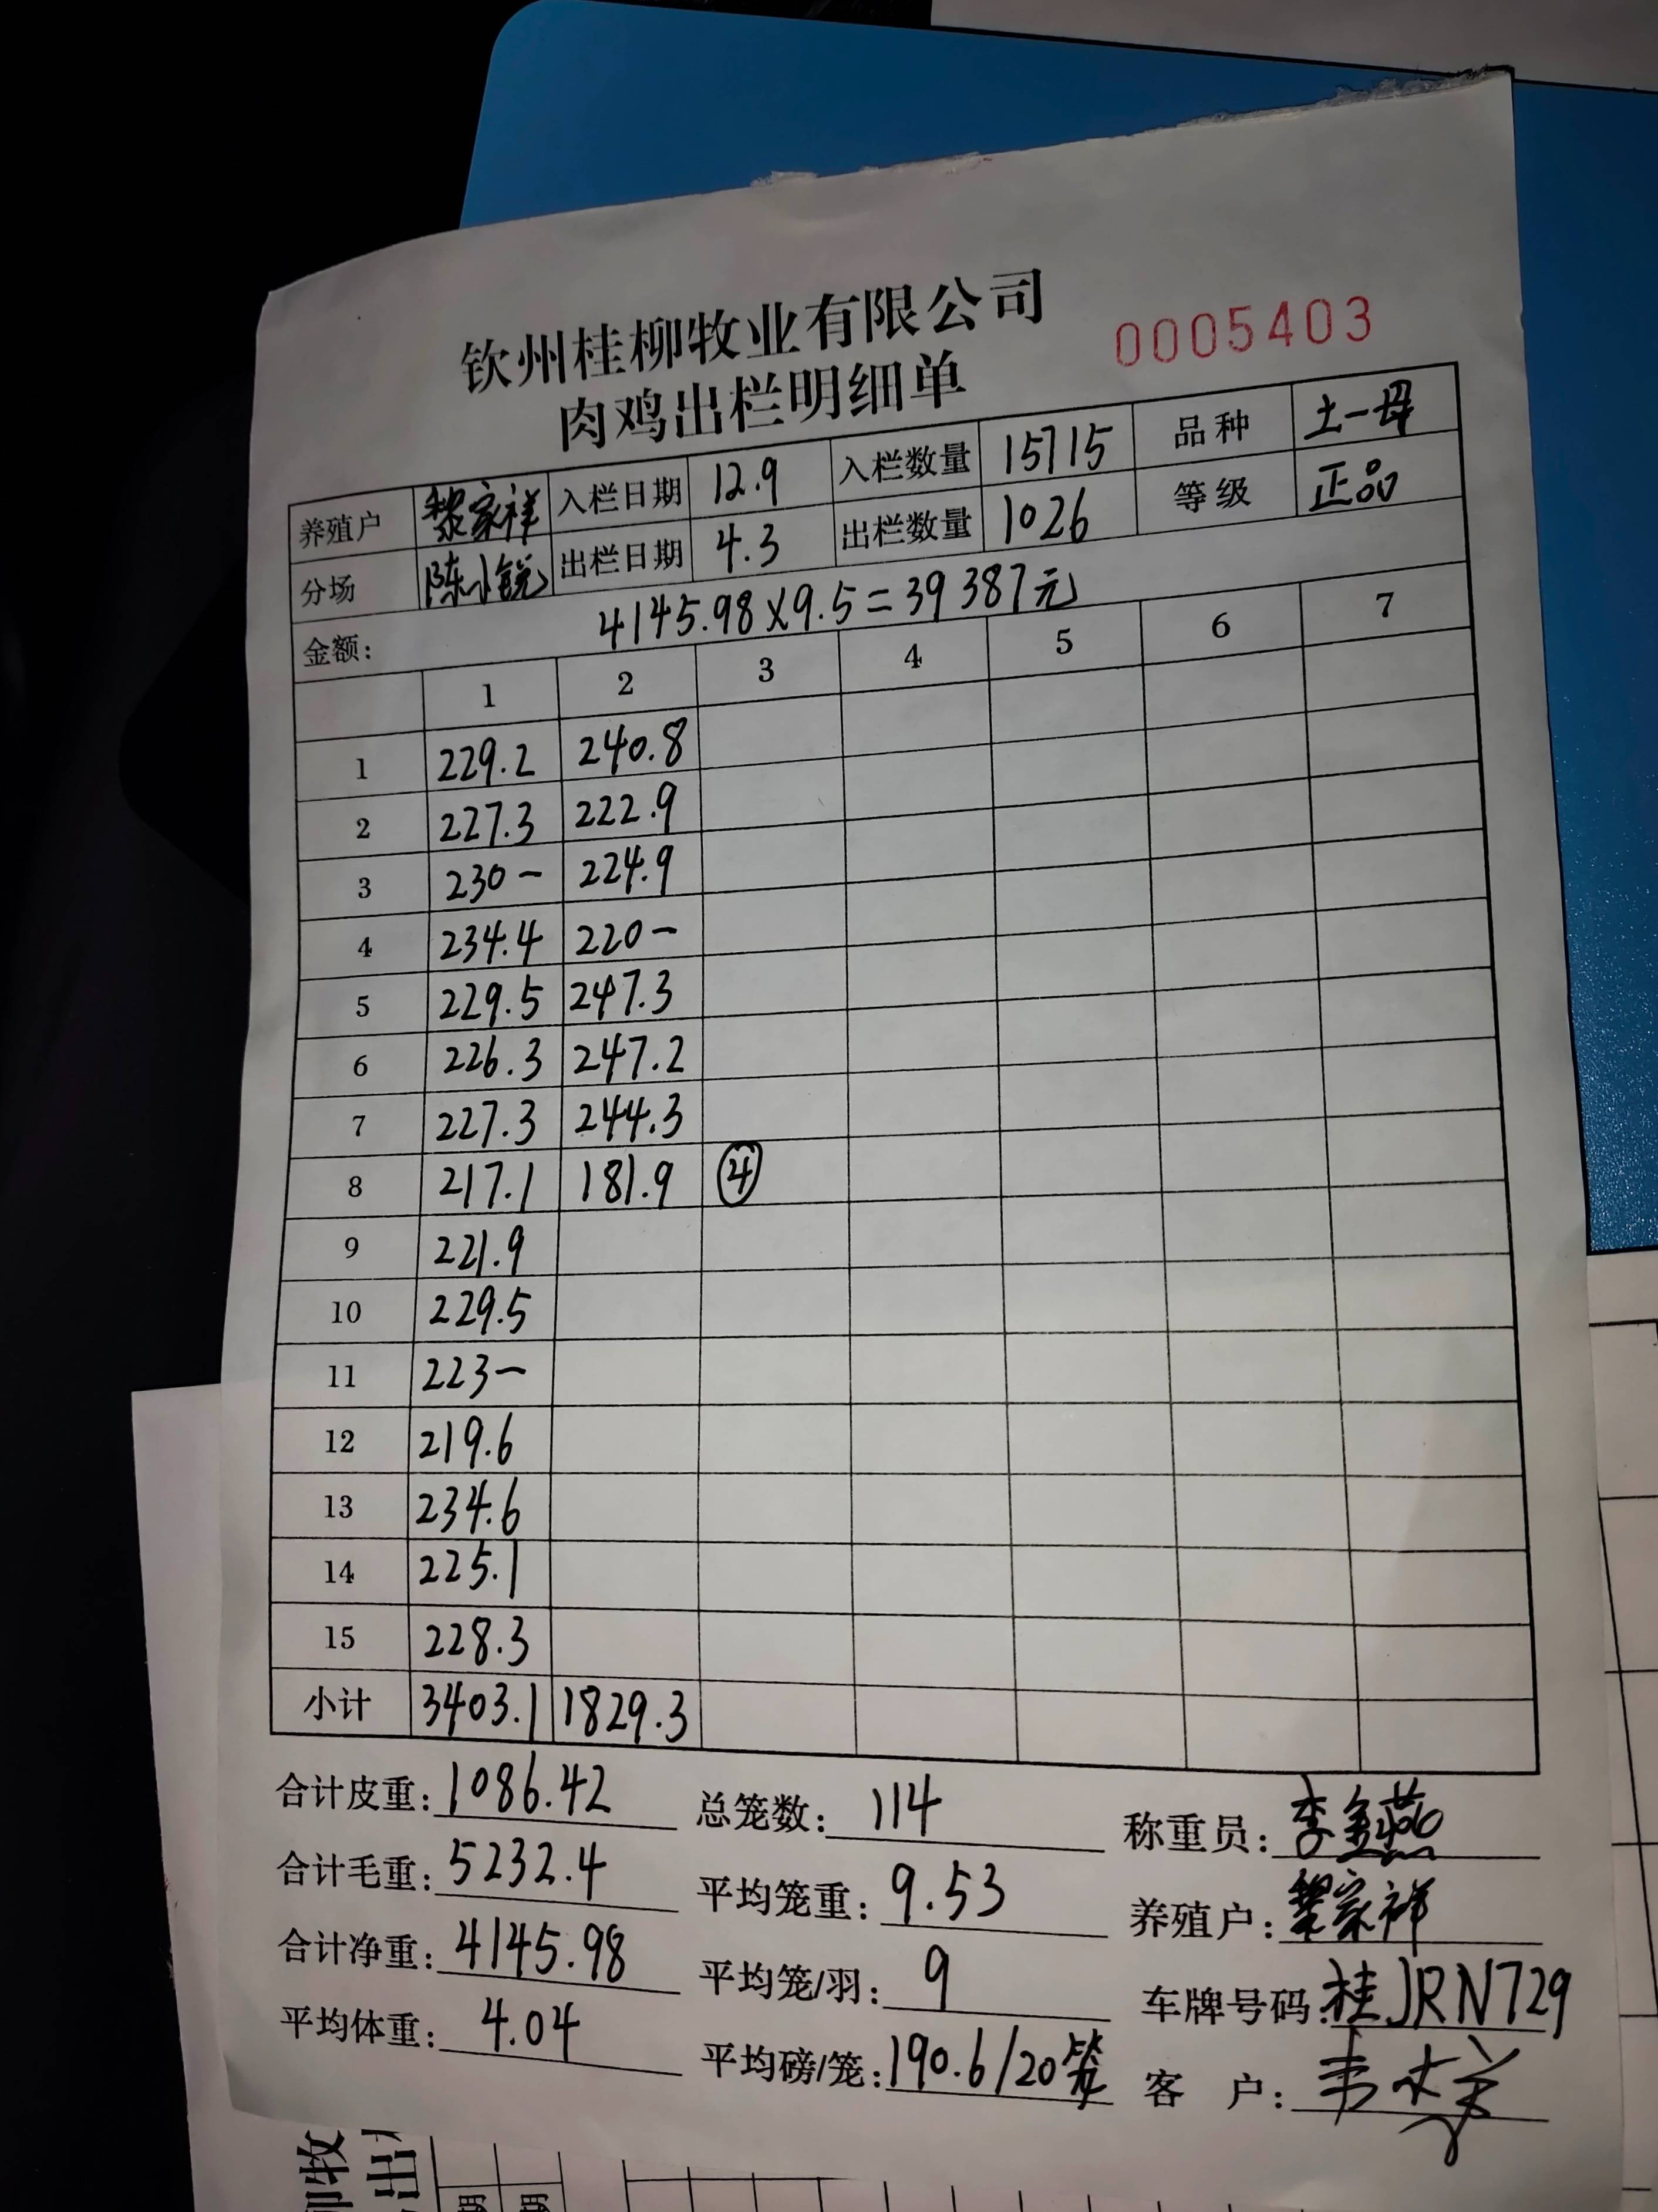 钦州桂柳牧业有限公司
肉鸡出栏明细单 0005403
养殖户 黎家祥 入栏日期 12.9 入栏数量 15715 品种 土一母
分场 陈小锐 出栏日期 4.3 出栏数量 1026 等级 正品
金额: 4145.98×9.5=39387元
1 2 3 4 5 6 7
1 229.2 240.8
2 227.3 222.9
3 230- 224.9
4 234.4 220-
5 229.5 247.3
6 226.3 247.2
7 227.3 244.3
8 217.1 181.9 ④
9 221.9
10 229.5
11 223-
12 219.6
13 234.6
14 225.1
15 228.3
小计 3403.1 1829.3
合计皮重: 1086.42 总笼数: 114 称重员: 李金燕
合计毛重: 5232.4 平均笼重: 9.53 养殖户: 黎家祥
合计净重: 4145.98 平均笼/羽: 9 车牌号码: 桂JRN729
平均体重: 4.04 平均磅/笼: 190.6/20笼 客 户: